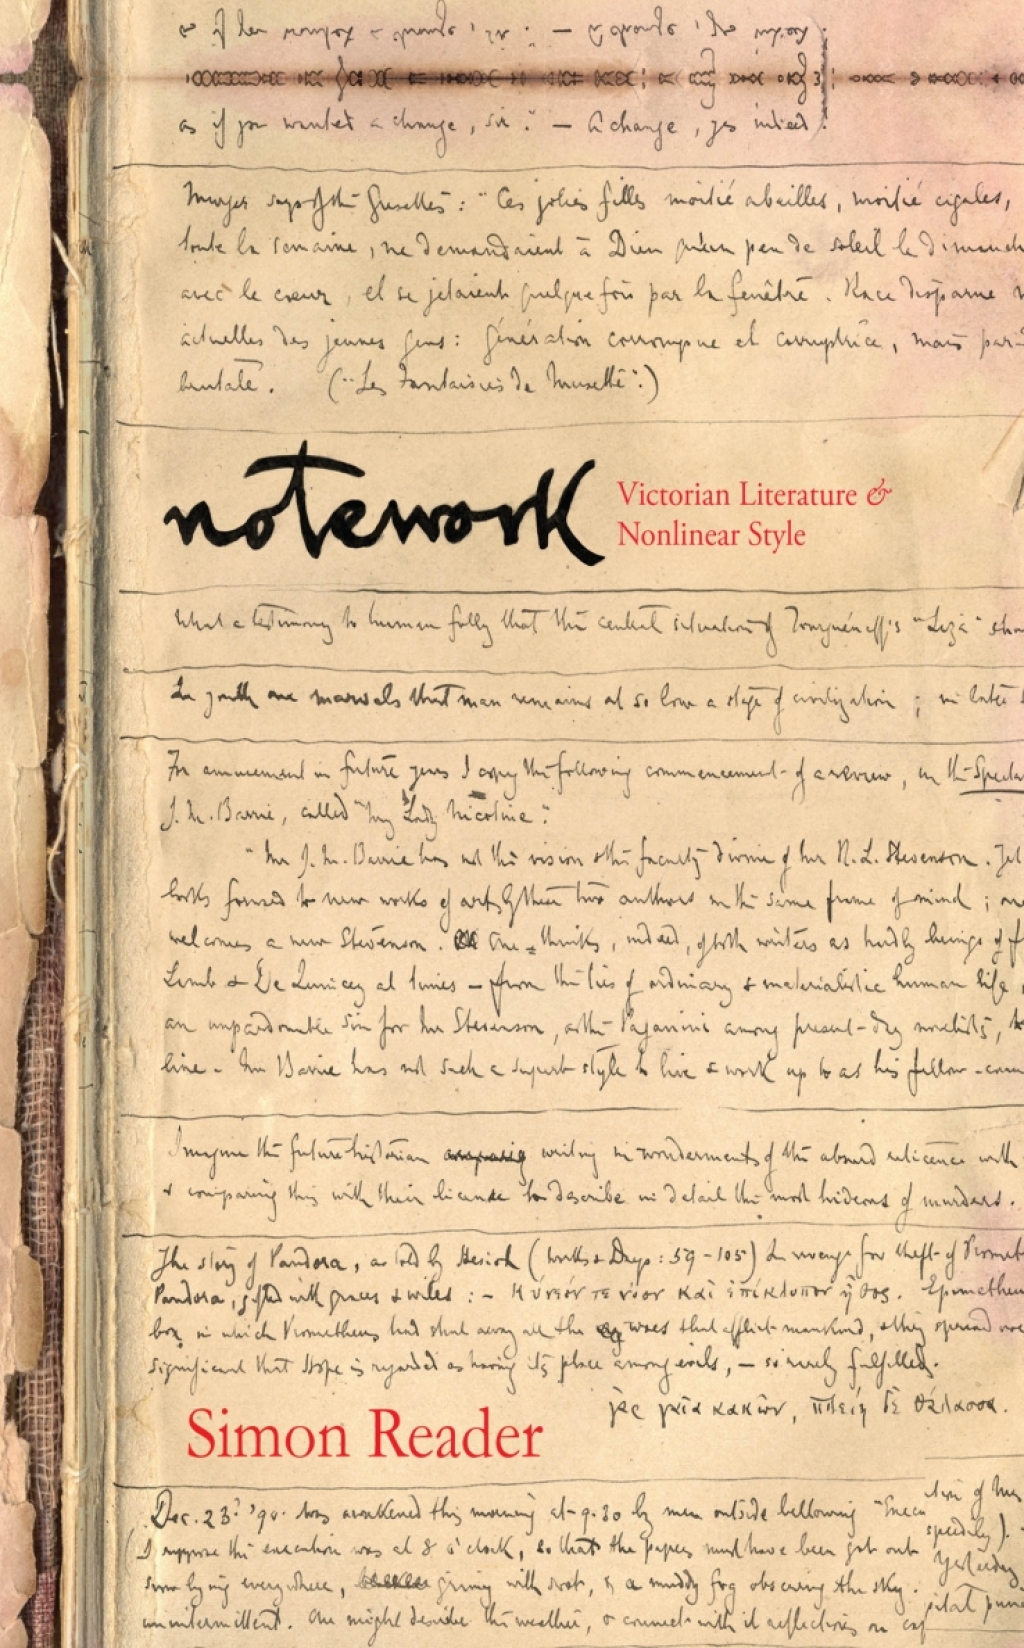 as if you wanted a change, sir." — A change, yes indeed!
Murger says of the Grisettes: "Ces jolies filles moitié abeilles, moitié cigales,
toute la semaine, ne demandaient à Dieu qu'un peu de soleil le dimanch
avec le cœur, et se jetaient quelquefois par la fenêtre. Race disparue
actuelles des jeunes gens: génération corrompue et corruptrice, mais par
brutale. ("Les Fantaisies de Musette".)
notework
Victorian Literature &
Nonlinear Style
What a testimony to human folly that the central situation of Tourguéneff's "Liza" sho
In youth one marvels that man remains at so low a stage of civilization; in later
For amusement in future years I copy the following commencement of a review, in the Specta
J. M. Barrie, called "My Lady Nicotine".
"Mr J. M. Barrie has not the vision & the faculty divine of Mr R. L. Stevenson. Yet
looks forward to new works of art of these two authors in the same frame of mind; one
welcomes a new Stevenson. One thinks, indeed, of both writers as hardly beings of f
Lamb & De Quincey at times — from the ties of ordinary & materialistic human life
an unpardonable sin for Mr Stevenson, as the Paganini among present-day novelists, to
line. Mr Barrie has not such a superb style to live & work up to as his fellow-coun
Imagine the future historian writing in wonderment of the absurd reticence with
& comparing this with their license to describe in detail the most hideous of murders.
The story of Pandora, as told by Hesiod (Works & Days: 59-105) In revenge for theft of Promet
Pandora, gifted with graces & wiles: — κύνεόν τε νόον καὶ ἐπίκλοπον ἦθος. Epimetheus
box in which Prometheus had shut away all the woes that afflict mankind, & they spread
significant that Hope is regarded as having its place among evils, — so rarely fulfilled.
γαῖα κακῶν, πλείη δὲ θάλασσα.
Simon Reader
Dec. 23. '90. Was awakened this morning at 9.30 by men outside bellowing
I suppose the execution was at 8 o'clock, so that the papers must have been got out
snow lying everywhere, grimy with soot, & a muddy fog obscuring the sky.
unintermittent. One might describe the weather, & connect with it reflections on cap
tion of Mrs
speedily).
Yesterday
pital pun